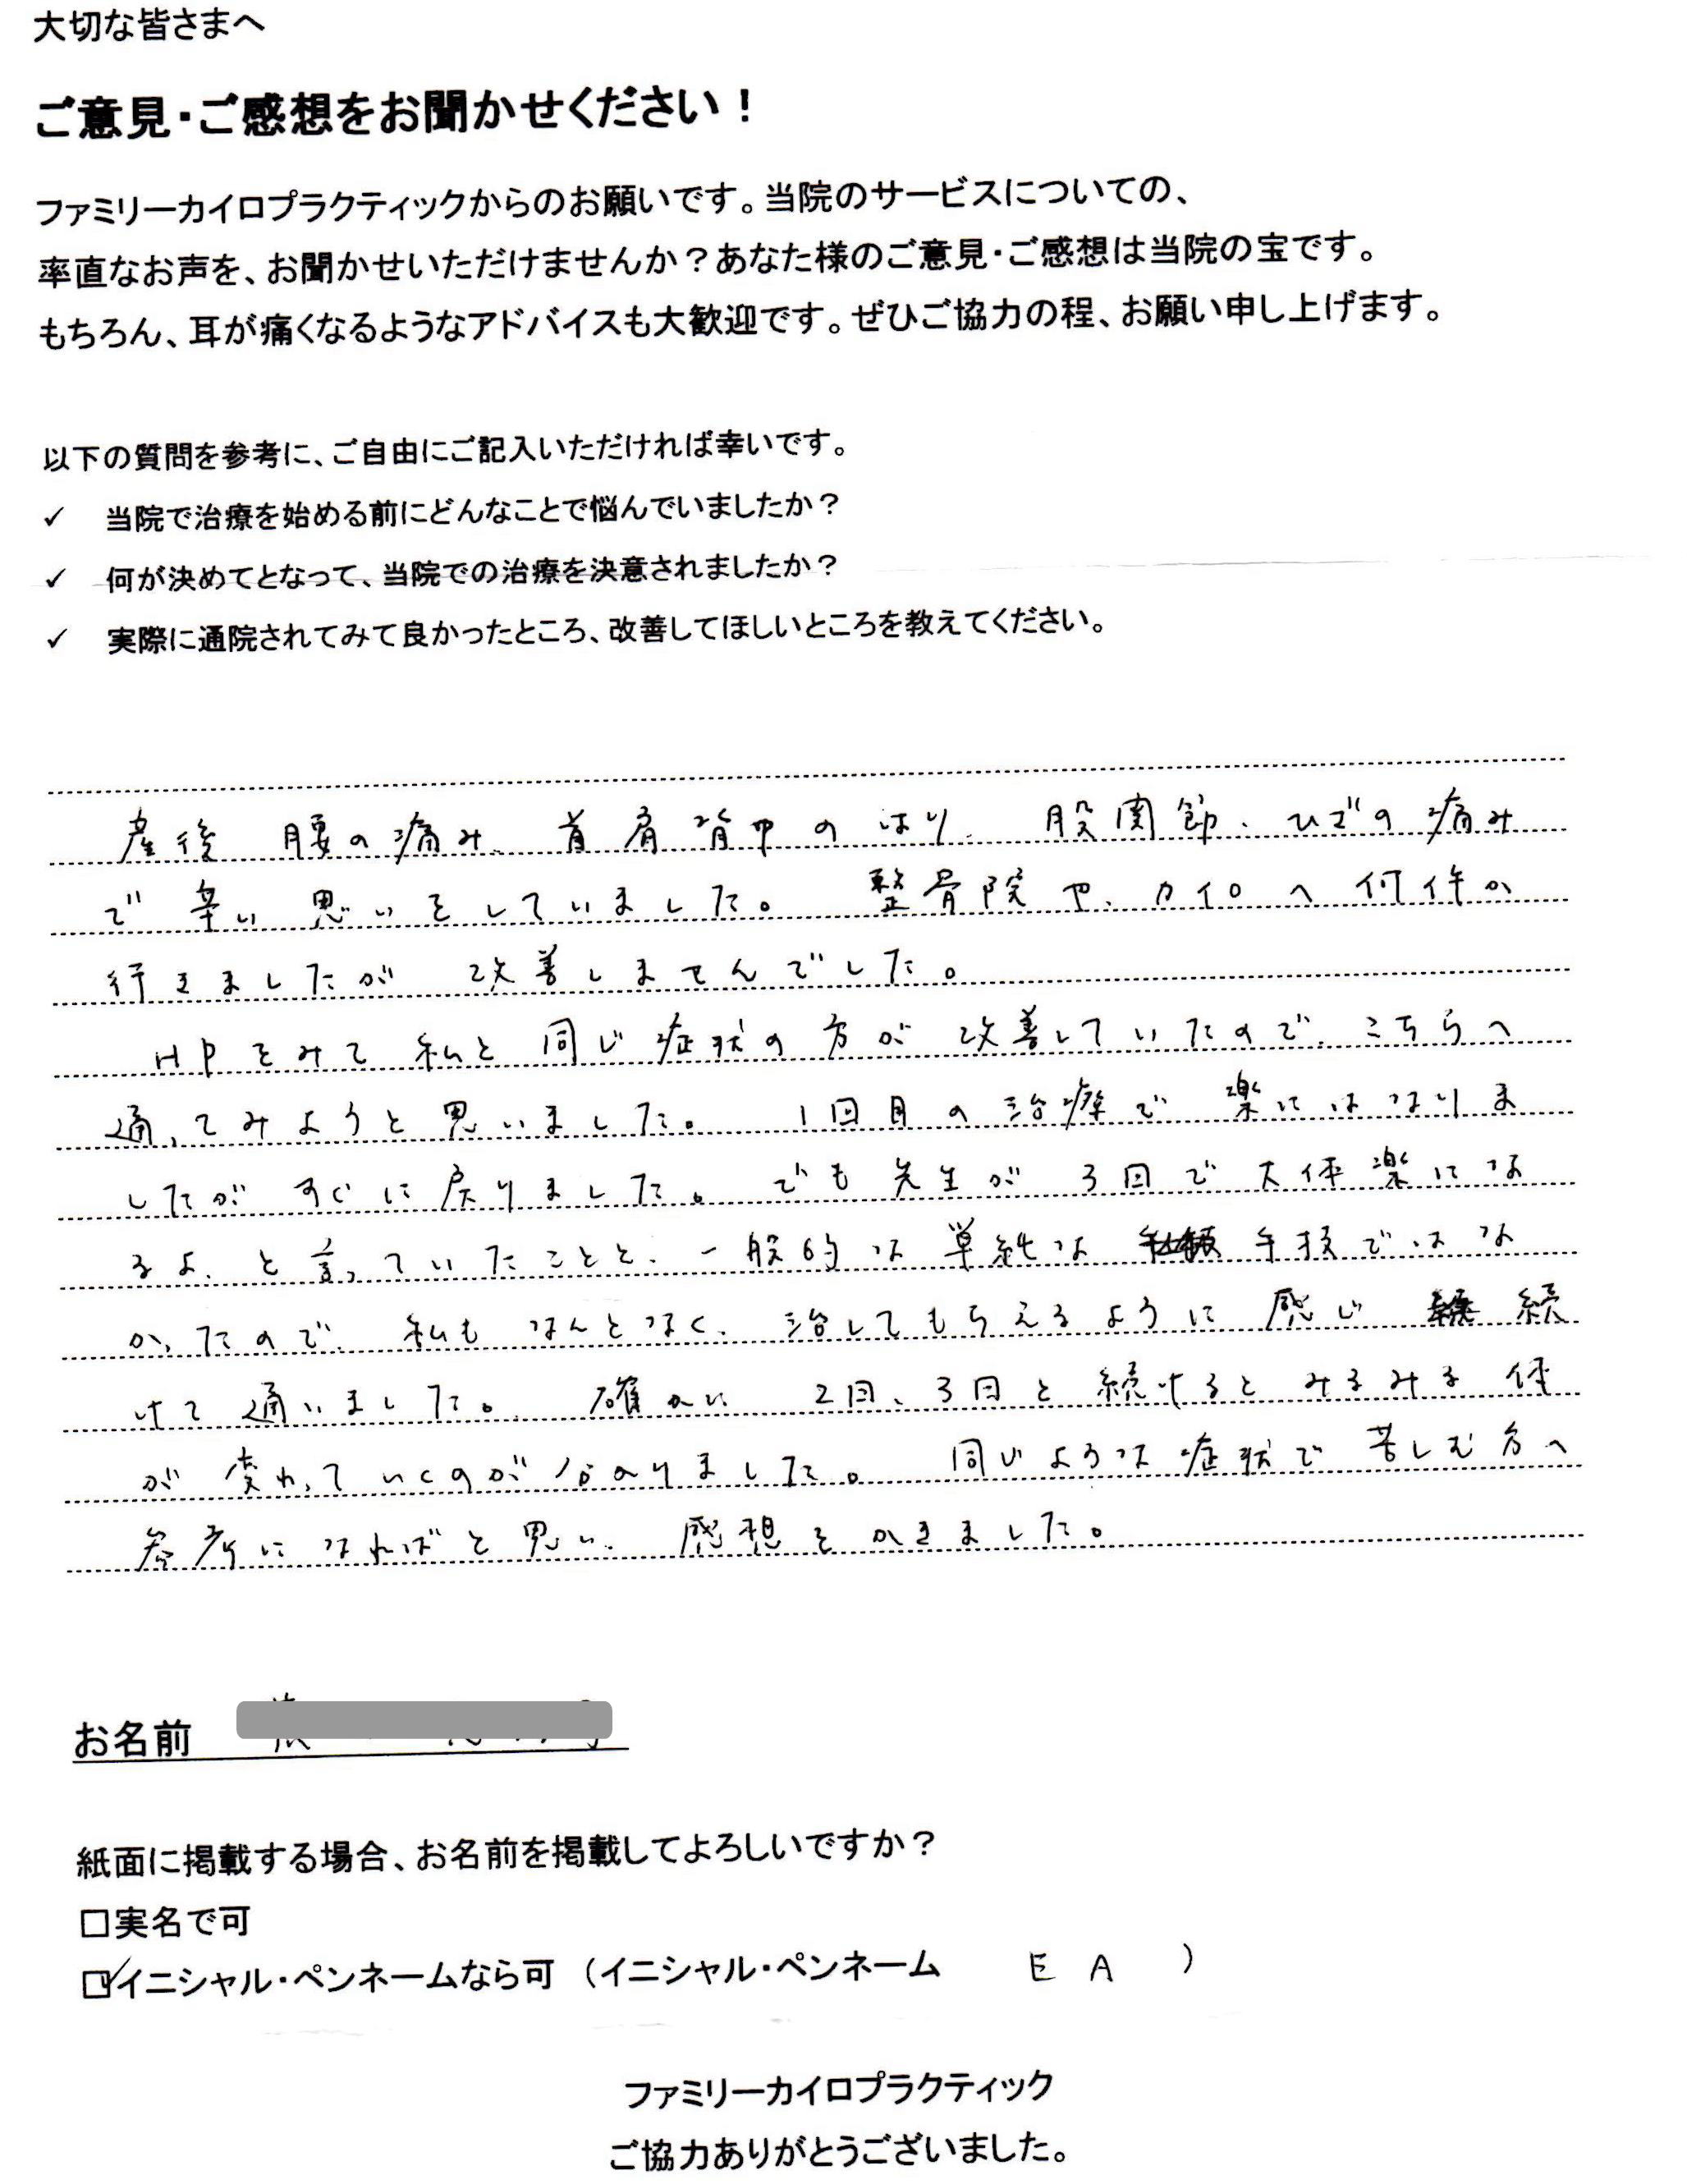 大切な皆さまへ
ご意見・ご感想をお聞かせください！
ファミリーカイロプラクティックからのお願いです。当院のサービスについての、
率直なお声を、お聞かせいただけませんか？あなた様のご意見・ご感想は当院の宝です。
もちろん、耳が痛くなるようなアドバイスも大歓迎です。ぜひご協力の程、お願い申し上げます。
以下の質問を参考に、ご自由にご記入いただければ幸いです。
✓ 当院で治療を始める前にどんなことで悩んでいましたか？
✓ 何が決めてとなって、当院での治療を決意されましたか？
✓ 実際に通院されてみて良かったところ、改善してほしいところを教えてください。
産後 腰の痛み、首肩背中のはり、股関節、ひざの痛み
で辛い思いをしていました。 整骨院や、カイロへ何件か
行きましたが 改善しませんでした。
HPをみて私と同じ症状の方が改善していたので、こちらへ
通ってみようと思いました。 1回目の治療で楽にはなりま
したがすぐに戻りました。でも先生が3回で大体楽にな
るよ、と言っていたことと、一般的な単純な 手技ではな
かったので、私もなんとなく、治してもらえるように感じ 続
けて通いました。 確かに 2回、3回と続けるとみるみる体
が変わっていくのが分かりました。 同じような症状で苦しむ方へ
参考になればと思い、感想をかきました。
お名前
紙面に掲載する場合、お名前を掲載してよろしいですか？
□実名で可
☑イニシャル・ペンネームなら可（イニシャル・ペンネーム E A ）
ファミリーカイロプラクティック
ご協力ありがとうございました。